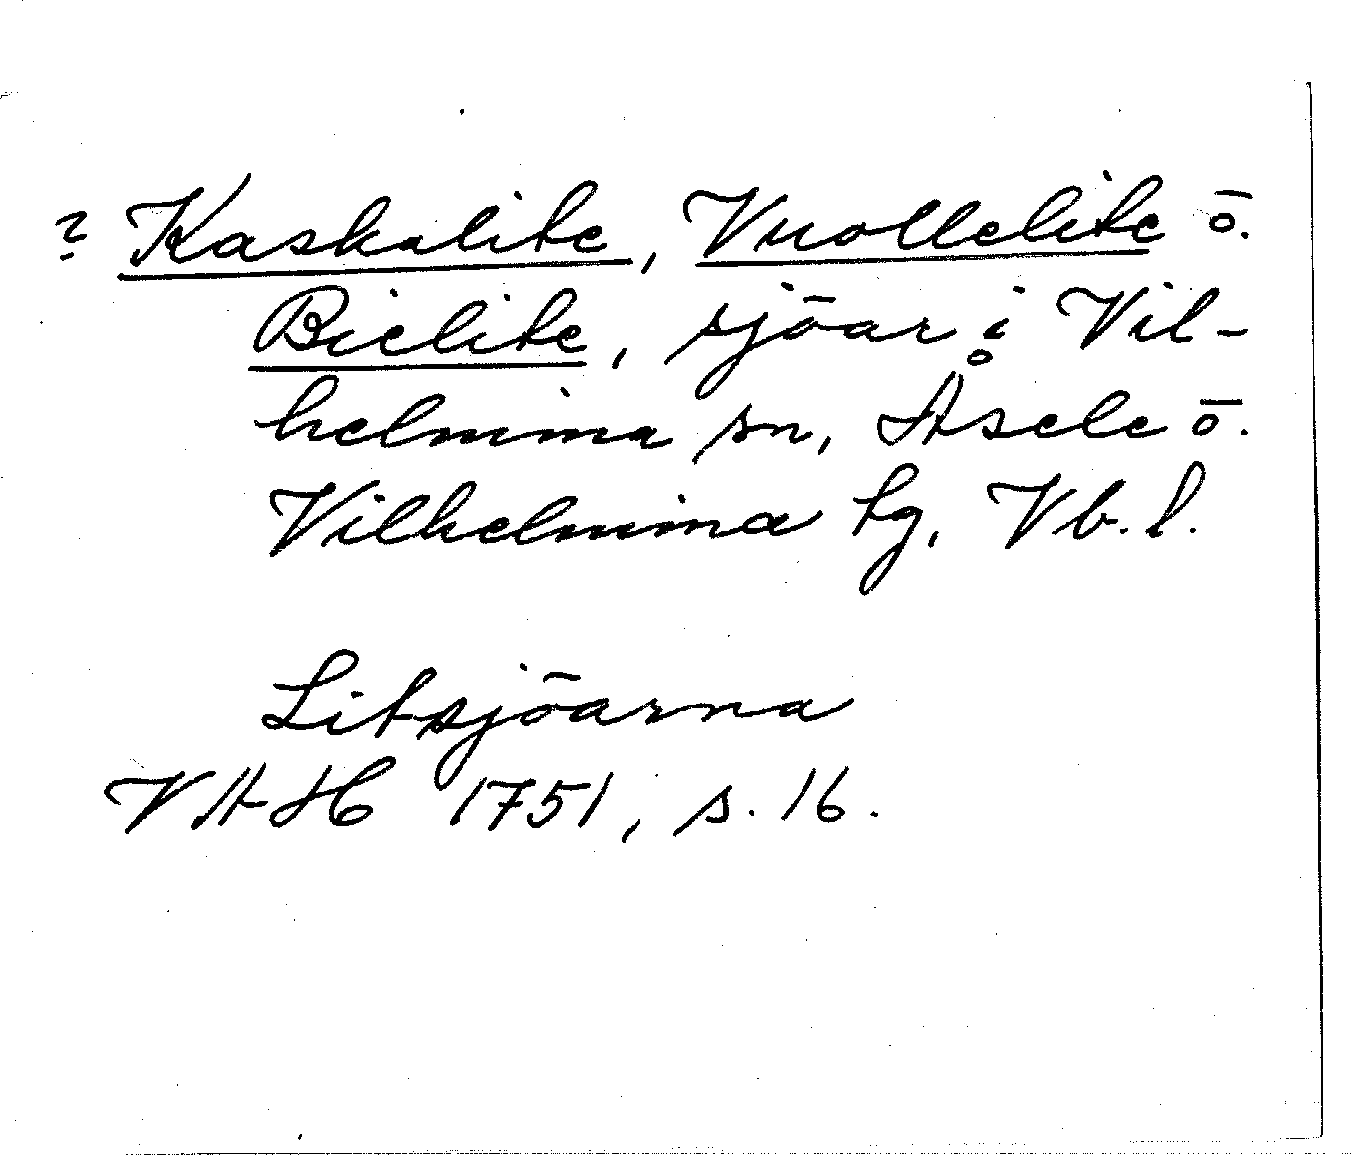 ? Kaskalite, Vuollelite ö.
Bielite, sjöar i Vil-
helmina sn, Åsele ö.
Vilhelmina tg, Vb. l.
Litsjöarna
VAH 1751, s. 16.